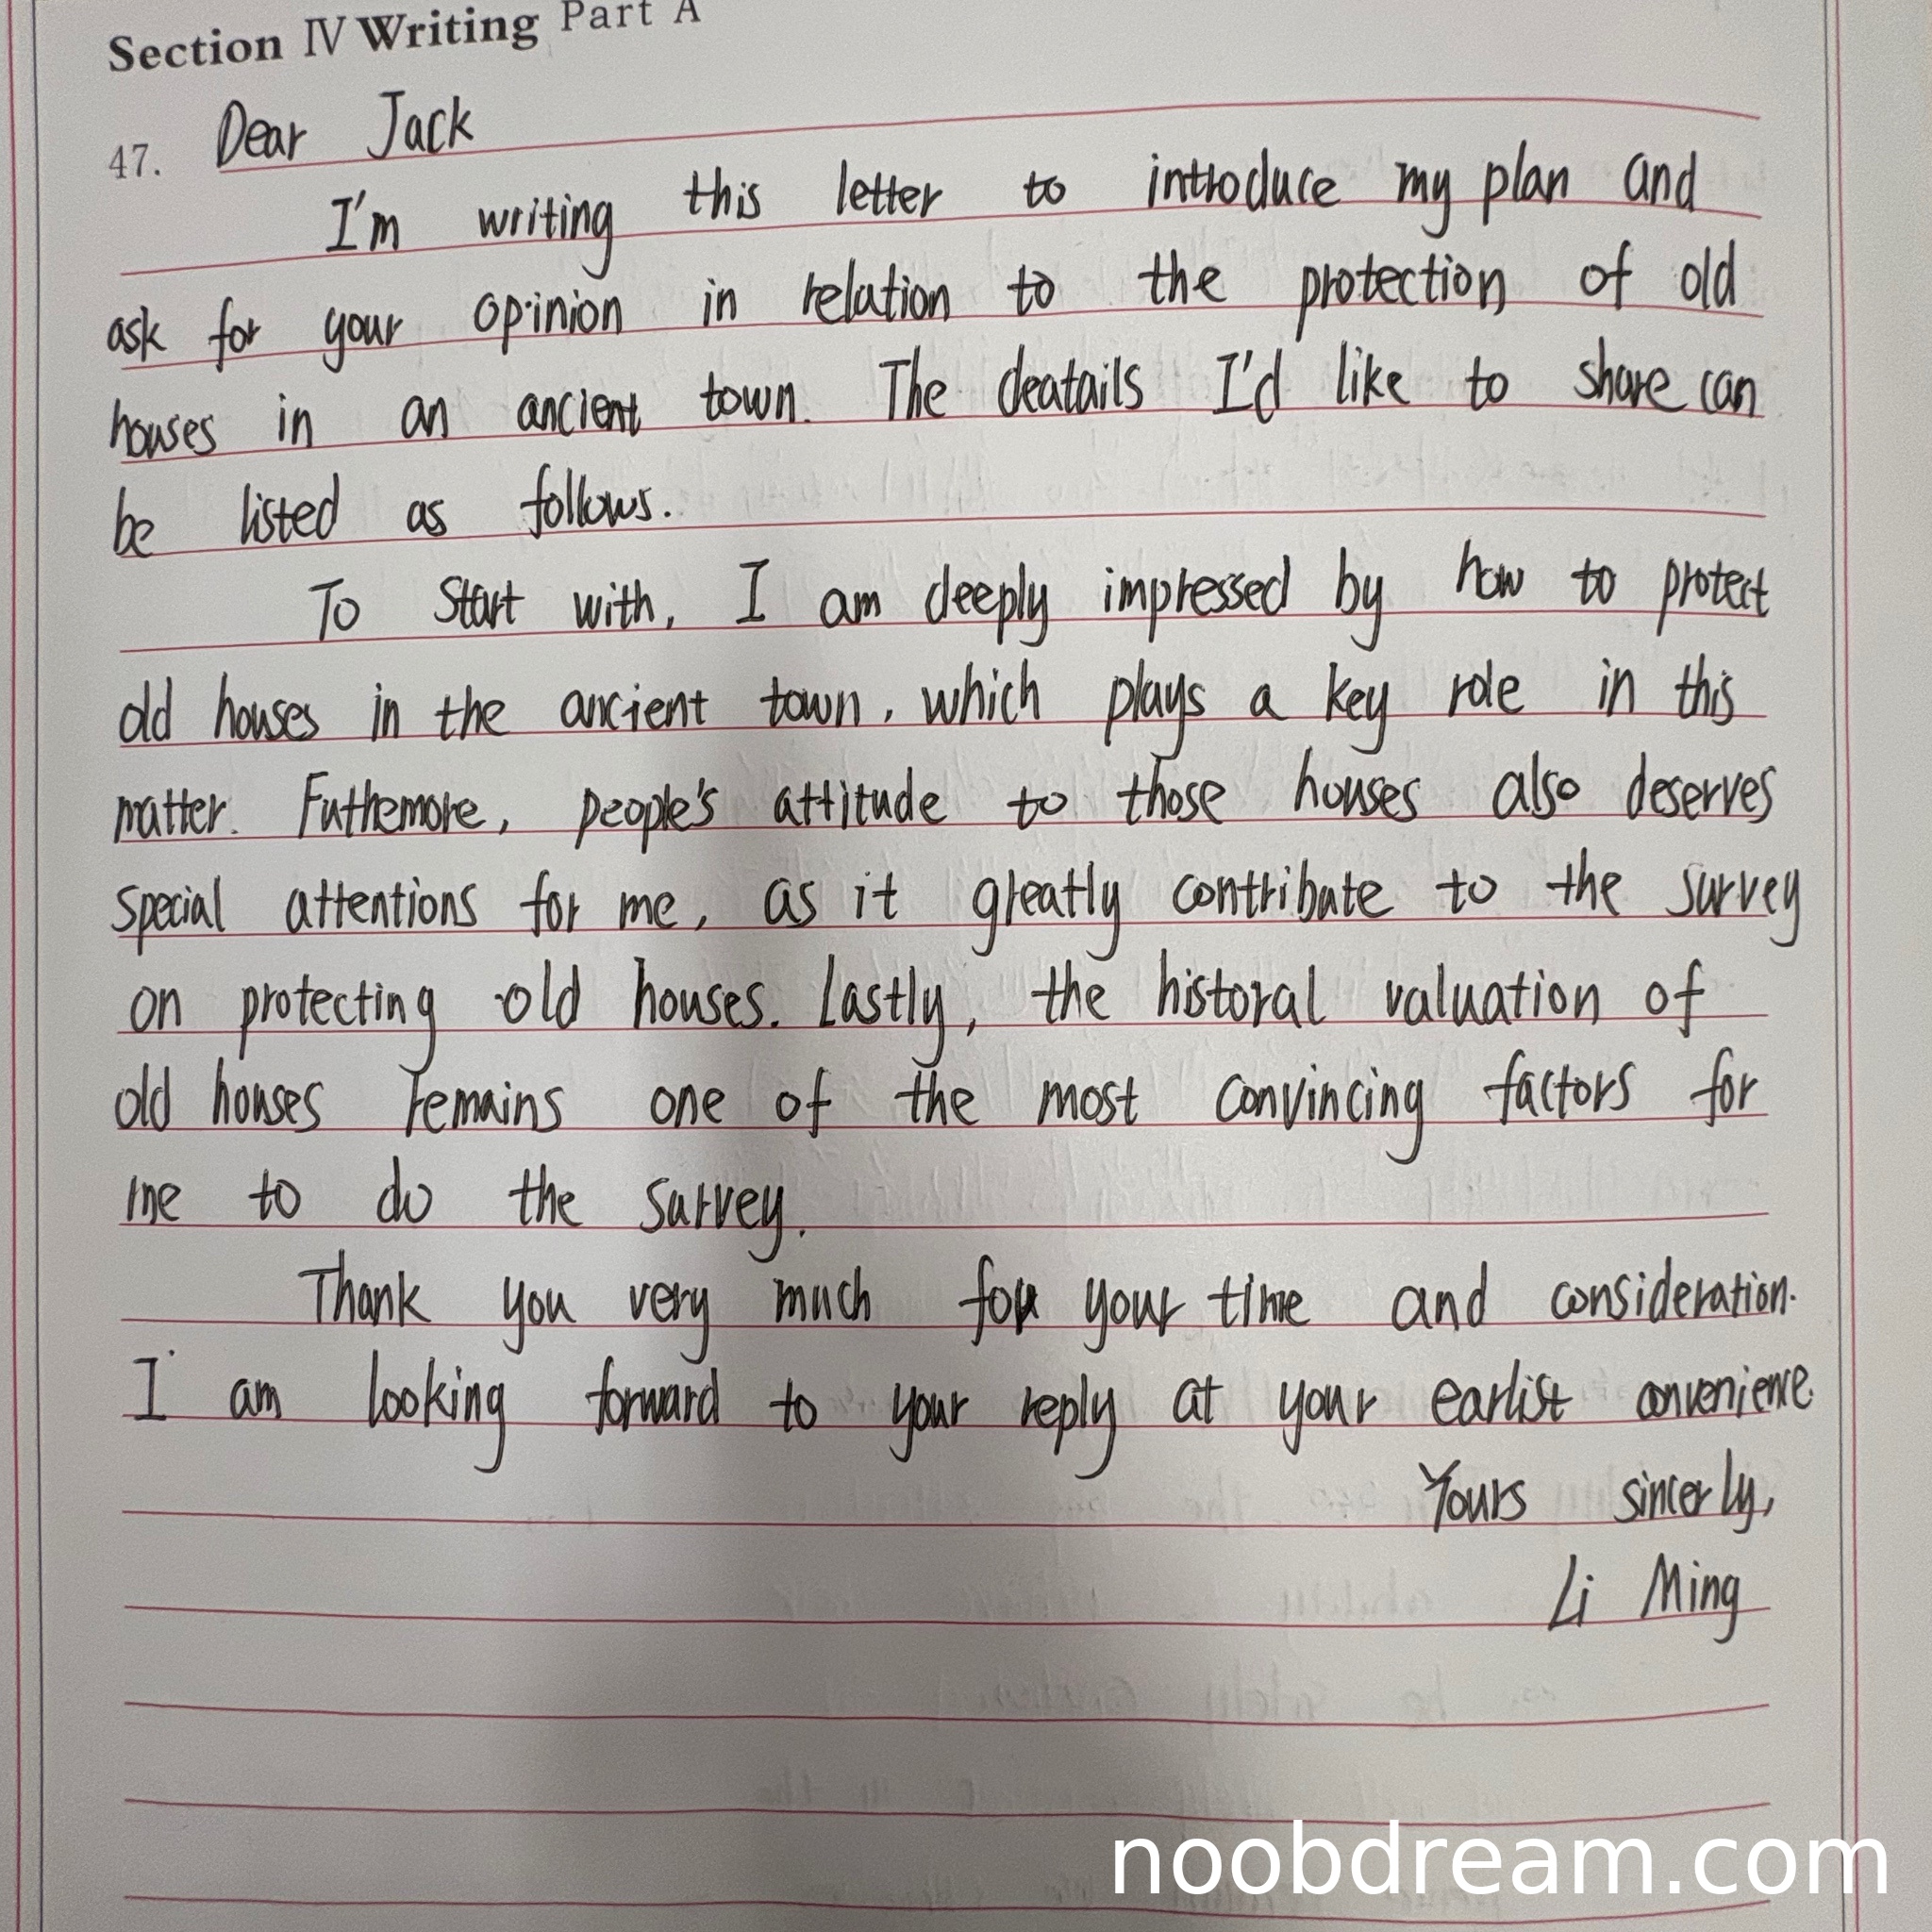 Section IV Writing Part A
47. Dear Jack
I'm writing this letter to introduce my plan and
ask for your opinion in relation to the protection of old
houses in an ancient town. The deatails I'd like to share can
be listed as follows.
To start with, I am deeply impressed by how to protect
old houses in the ancient town, which plays a key role in this
matter. Futhemore, people's attitude to those houses also deserves
special attentions for me, as it greatly contribute to the survey
on protecting old houses. Lastly, the historal valuation of
old houses remains one of the most convincing factors for
me to do the survey.
Thank you very much for your time and consideration.
I am looking forward to your reply at your earlist convenience.
Yours sincerly,
Li Ming
noobdream.com